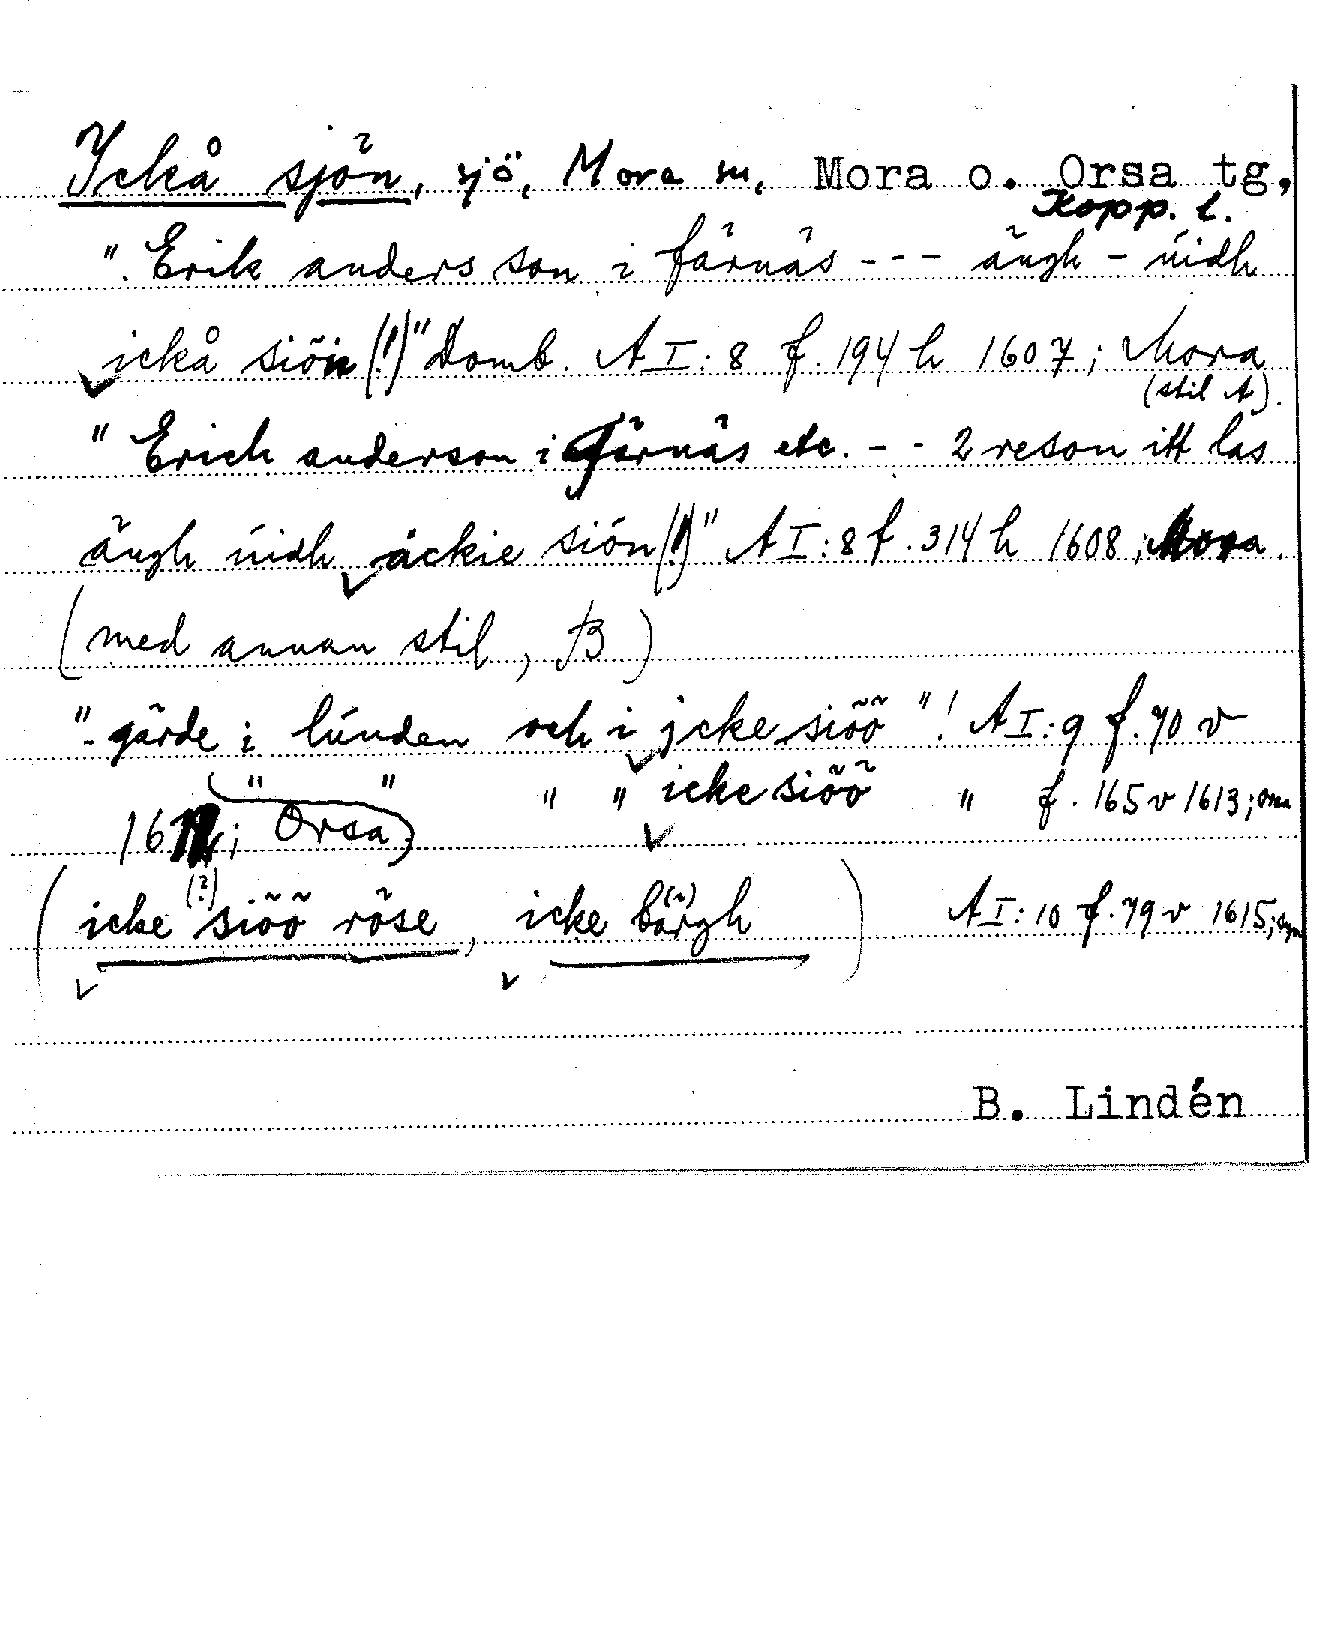 Ickå sjön, sjö, Mora sn, Mora o. Orsa tg,
Kopp. l.
"Erik anders son i färnäs --- ängh - uidh
ickå siön (!)" Domb. A I: 8 f. 194 h 1607; Mora
(stil A).
"Erich anderson i Färnäs etc. - - 2 reson itt las
ängh uidh ackie siön (!)" A I: 8 f. 314 h 1608; Mora.
(med annan stil, B)
"- gärde i lunden och i jcke siöö"! A I: 9 f. 70 v
" " " " icke siöö " f. 165 v 1613; Orsa
; Orsa)
(icke (?) siöö röse, icke bärgh) A I: 10 f. 79 v 1615;
B. Lindén